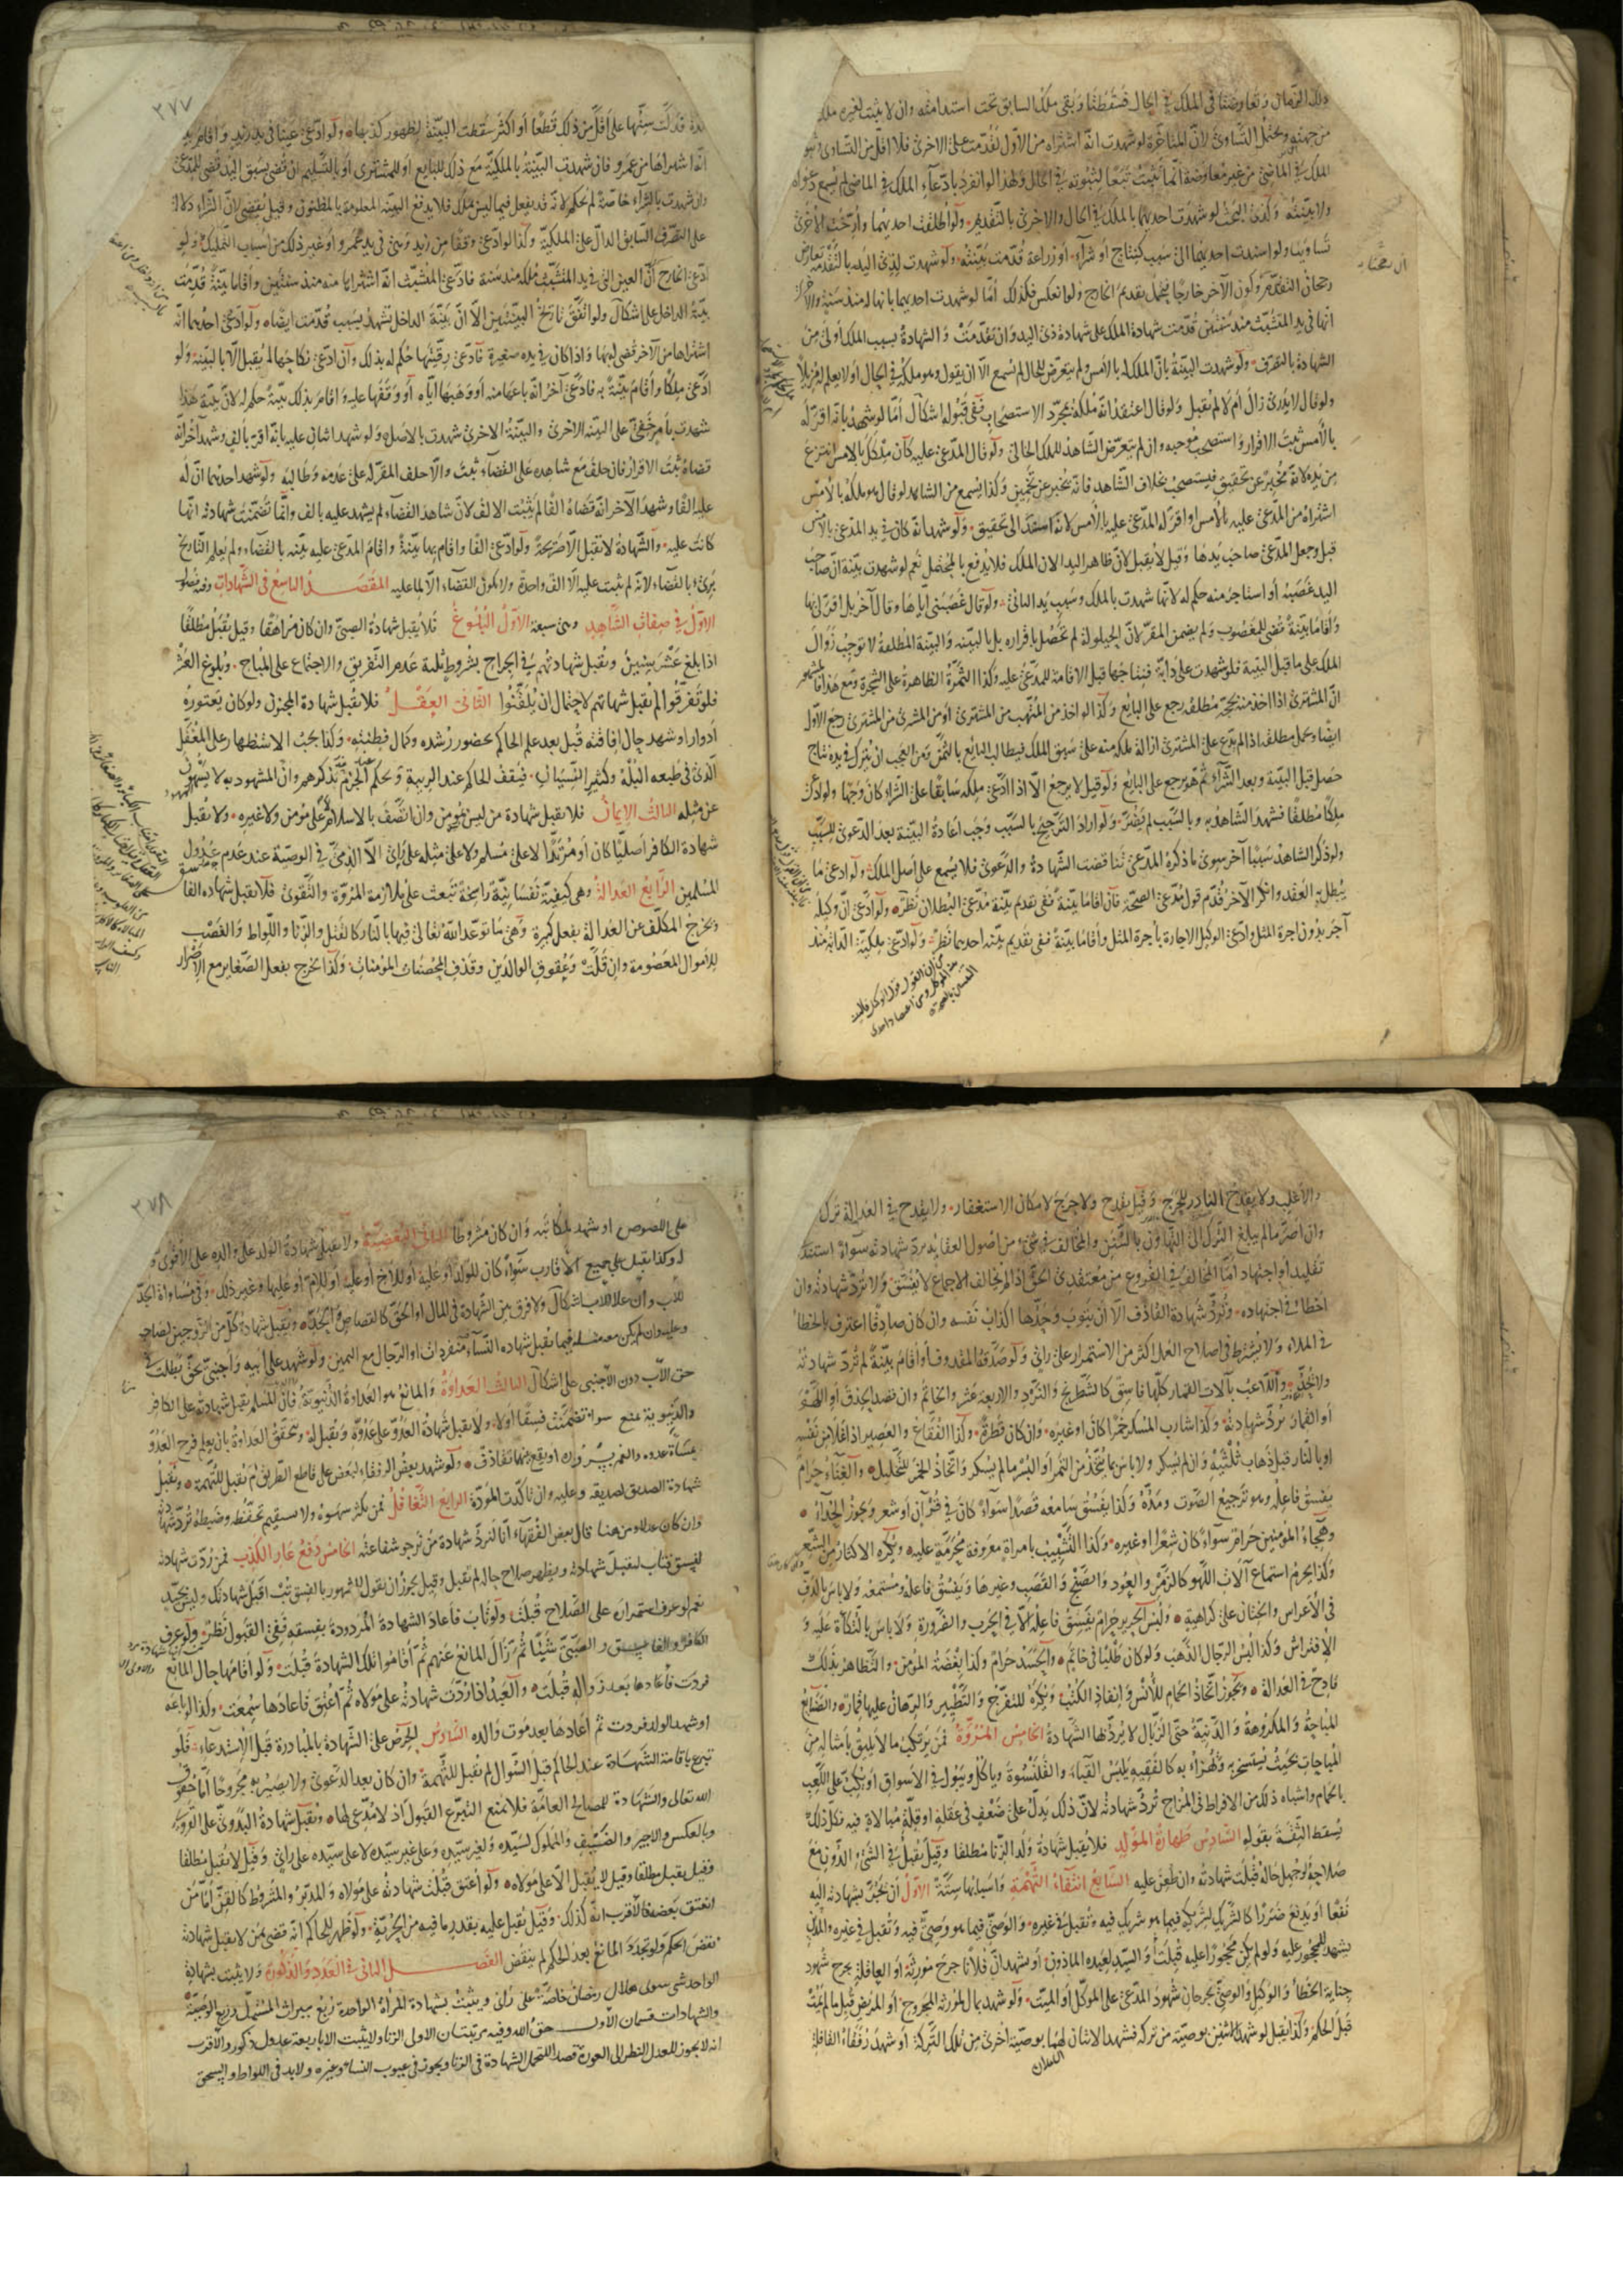 ذلك الزمان وتعارضتا في الملك في الحال فتسقطتا وبقي ملك السابق تحت استدامته وان لا يثبت لغيره ملك
من جهته ويحتمل التساوي لان المتاخرة لو شهدت انه اشتراه من الاول لقدمت على الاخرى فلا اقل من التساوي وثبو
الملك في الماضي من غير معارضة انما يثبت تبعا لثبوته في الحال ولهذا لو انفرد بادعاء الملك في الماضي لم يسمع دعواه
ولا بينته وكذا البحث لو شهدت احديهما بالملك في الحال والاخرى بالتقديم ولو اطلقت احديهما وارخت الاخرى
تساوتا ولو اسندت احديهما الى سبب كنتاج او شراء او زراعة قدمت بينته ولو شهدت لذي اليد بالتقدم تعارض
رجحان التقدم وكون الآخر خارجا فيحتمل تقديم الخارج ولو انعكس فكذلك اما لو شهدت احديهما بانها له منذ سنة والاخرى
انها في يد المتشبث منذ سنتين قدمت شهادة الملك على شهادة ذي اليد وان تقدمت والشهادة بسبب الملك اولى من
الشهادة بالتصرف ولو شهدت البينة بان الملك له بالامس ولم يتعرض للحال لم يسمع الا ان يقول وهو ملكه في الحال او لا يعلم له مزيلا
ولو قال لا يدري زال ام لا لم تقبل ولو قال اعتقد انه ملكه بمجرد الاستصحاب ففي قبوله اشكال اما لو شهد بانه اقر له
بالامس ثبت الاقرار واستصحب موجبه وان لم يتعرض الشاهد للملك الحالي ولو قال المدعى عليه كان ملكك بالامس انتزع
من يده لانه مخبر عن تحقيق فيستصحب بخلاف الشاهد فانه يخبر عن تخمين وكذا يسمع من الشاهد لو قال هو ملكه بالامس
اشتراه من المدعى عليه بالامس او اقر له المدعى عليه بالامس لانه استند الى تحقيق ولو شهد انه كان في يد المدعي بالامس
قبل وجعل المدعي صاحب يدها وقيل لا يقبل لان ظاهر اليد الان الملك فلا يدفع بالمحتمل نعم لو شهدت بينة ان صاحب
اليد غصبه او استاجر منه حكم له لانها شهدت بالملك وسبب يد الثاني ولو قال غصبني اياها وقال آخر بل اقر لي بها
واقاما بينة قضي للمغصوب ولم يضمن المقر لان الحيلولة لم تحصل باقراره بل بالبينة والبينة المطلقة لا توجب زوال
الملك على ما قبل البينة فلو شهدت على دابة فنتاجها قبل الاقامة للمدعى عليه وكذا الثمرة الظاهرة على الشجرة ومع هذا فالمشهور
ان المشتري اذا اخذ منه بحجة مطلقة رجع على البايع وكذا لو اخذ من المتهب من المشتري او من المشتري من المشتري رجع الاول
ايضا ويحمل مطلقه اذا لم يدع على المشتري ازالة ملكه منه على سبق الملك فيطالب البايع بالثمن ومن العجب ان يترك في يده نتاج
حصل قبل البينة وبعد الشراء ثم هو يرجع على البايع ولو قيل لا يرجع الا اذا ادعي ملكه سابقا على الشراء كان وجها ولو ادعى
ملكا مطلقا فشهد الشاهد به وبالسبب لم يضر ولو اراد الترجيح بالسبب وجب اعادة البينة بعد الدعوى للسبب
ولو ذكر الشاهد سببا آخر سوى ما ذكره المدعي تناقضت الشهادة والدعوى فلا يسمع على اصل الملك ولو ادعى ما
يبطل به العقد وانكر الآخر قدم قول مدعي الصحة فان اقاما بينة ففي تقديم بينة مدعي البطلان نظر ولو ادعى ان وكيله
آجر بدون اجرة المثل وادعى الوكيل الاجارة باجرة المثل واقاما بينة ففي تقديم بينة احديهما نظر ولو ادعى ملكية الدابة منذ
٢٧٧
مدة فدلت سنها على اقل من ذلك قطعا او اكثر سقطت البينة لظهور كذبها ولو ادعى عينا في يد زيد واقام بينة
انه اشتراها من عمرو فان شهدت البينة بالملكية مع ذلك للبايع او للمشتري او بالتسليم ان قضي بسبق اليد قضي للمدعي
وان شهدت بالشراء خاصة لم يحكم لانه قد يفعل فيما ليس بملك فلا يدفع اليد المعلومة بالمظنون وقيل يقضى لان الشراء دلالة
على التصرف السابق الدال على الملكية وكذا لو ادعى وقفا من زيد وهي في يد عمرو او غير ذلك من اسباب التمليك ولو
ادعى الخارج ان العين التي في يد المتشبث ملكه منذ سنة فادعى المتشبث انه اشتراها منه منذ سنتين واقاما بينة قدمت
بينة الداخل على اشكال ولو اتفق تاريخ البينتين الا ان بينة الداخل تشهد بسبب قدمت ايضا ولو ادعى احديهما انه
اشتراها من الآخر قضي له بها واذا كان في يده صغيرة فادعى رقيتها حكم له بذلك وان ادعى نكاحها لم يقبل الا بالبينة ولو
ادعى ملكا واقام بينة به فادعى آخر انه باعها منه او وهبها اياه او وقفها عليه واقام بذلك بينة حكم له لان بينة هذا
شهدت بامر خفي على البينة الاخرى والبينة الاخرى شهدت بالاصل ولو شهد اثنان عليه بانه اقر بالف وشهد آخر انه
قضاه ثبت الاقرار فان حلف مع شاهده على القضاء ثبت والا حلف المقر له على عدمه وطالبه ولو شهد احديهما ان له
عليه الفا وشهد الآخر انه قضاه الفا لم يثبت الالف لان شاهد القضاء لم يشهد عليه بالف وانما تضمنت شهادته انها
كانت عليه والشهادة لا تقبل الا صريحة ولو ادعى الفا واقام بها بينة واقام المدعى عليه بينة بالقضاء ولم يعلم التاريخ
برئ بالقضاء لانه لم يثبت عليه الا الف واحدة ولا يكون القضاء الا لما عليه المقصد التاسع في الشهادات وفيه فصول
الاول في صفات الشاهد وهي سبعة الاول البلوغ فلا يقبل شهادة الصبي وان كان مراهقا وقيل تقبل مطلقا
اذا بلغ عشر سنين وتقبل شهادتهم في الجراح بشروط ثلثة عدم التفريق والاجتماع على المباح وبلوغ العشر
فلو تفرقوا لم تقبل شهادتهم لاحتمال ان يلقنوا الثاني العقل فلا تقبل شهادة المجنون ولو كان يعتوره
ادوارا وشهد حال افاقته قبل بعد علم الحاكم بحضور رشده وكمال فطنته وكذا يجب الاستظهار على المغفل
الذي في طبعه البله وكثير النسيان فيقف الحاكم عند الريبة ويحكم عند الجزم بتذكرهم وان المشهود به لا يسهون
عن مثله الثالث الايمان فلا تقبل شهادة من ليس بمؤمن وان اتصف بالاسلام على مؤمن ولا غيره ولا تقبل
شهادة الكافر اصليا كان او مرتدا لا على مسلم ولا على مثله على راي الا الذمي في الوصية عند عدم عدول
المسلمين الرابع العدالة وهي كيفية نفسانية راسخة تبعث على ملازمة المروة والتقوى فلا تقبل شهادة الفاسق
ويخرج المكلف عن العدالة بفعل كبيرة وهي ما توعد الله تعالى فيها بالنار كالقتل والزنا واللواط والغصب
للاموال المعصومة وان قلت وعقوق الوالدين وقذف المحصنات المؤمنات وكذا يخرج بفعل الصغاير مع الاصرار
والاغلب ولا يقدح النادر للحرج وقيل يقدح ولا حرج لامكان الاستغفار ولا يقدح في العدالة ترك
وان اصر ما لم يبلغ الترك الى التهاون بالسنن والمخالف في شيء من اصول العقايد يرد شهادته سواء استند
تقليد او اجتهاد اما المخالف في الفروع من معتقدي الحق اذا لم يخالف الاجماع لا يفسق ولا ترد شهادته وان
اخطا في اجتهاده وترد شهادة القاذف الا ان يتوب وحدها اكذاب نفسه وان كان صادقا اعترف بالخطا
في الملاء ولا يشترط في اصلاح العمل اكثر من الاستمرار على راي ولو صدقه المقذوف او اقام بينة لم ترد شهادته
ولا يحد واللاعب بآلات القمار كلها فاسق كالشطرنج والنرد والاربعة عشر والخاتم وان قصد الحذق او اللهو
او القمار ترد شهادته وكذا شارب المسكر خمرا كان او غيره وان كان قطرة وكذا الفقاع والعصير اذا غلا من نفسه
او بالنار قبل ذهاب ثلثيه وان لم يسكر ولا باس بما يتخذ من التمر او البسر ما لم يسكر واتخاذ الخمر للتخليل والغناء حرام
يفسق فاعله وهو ترجيع الصوت ومده وكذا يفسق سامعه قصدا سواء كان في قرآن او شعر ويجوز الحداء
وهجاء المؤمنين حرام سواء كان شعرا او غيره وكذا التشبيب بامراة معروفة محرمة عليه ويكره الاكثار من الشعر
وكذا يحرم استماع آلات اللهو كالزمر والعود والصنج والقصب وغيرها ويفسق فاعله ومستمعه ولا باس بالدف
في الاعراس والختان على كراهية ولبس الحرير حرام يفسق فاعله الا في الحرب والضرورة ولا باس بالتكاة عليه و
الافتراش وكذا لبس الرجال الذهب ولو كان طليا في خاتم والحسد حرام وكذا بغضة المؤمن والتظاهر بذلك
قادح في العدالة ويجوز اتخاذ الحمام للانس وانفاذ الكتب ويكره للتفرج والتطيير والرهان عليها قمار والصنايع
المباحة والمكروهة والدنية حتى الزبال لا يرد بها الشهادة الخامس المروة فمن يرتكب ما لا يليق بامثاله من
المباحات بحيث يستسخر به ويهزا به كالفقيه يلبس القباء والقلنسوة وياكل ويبول في الاسواق او يكب على اللعب
بالحمام واشباه ذلك من الافراط في المزاح ترد شهادته لان ذلك يدل على ضعف في عقله او قلة مبالاة فيه فكل ذلك
يسقط الثقة بقوله السادس طهارة المولد فلا يقبل شهادة ولد الزنا مطلقا وقيل يقبل في الشيء الدون مع
صلاحه ولو جهل حاله قبلت شهادته وان طعن عليه السابع انتفاء التهمة واسبابها ستة الاول ان يجر بشهادته اليه
نفعا او يدفع ضررا كالشريك لشريكه فيما هو شريك فيه وتقبل في غيره والوصي فيما هو وصي فيه وتقبل في غيره والمدين
يشهد للمحجور عليه ولو لم يكن محجورا عليه قبلت والسيد لعبده الماذون او يشهد ان فلانا جرح مورثه او العاقلة بجرح شهود
جناية الخطا والوكيل والوصي بجرحان شهود المدعي على الموكل او الميت ولو شهد بمال لمورثه المجروح او المريض قبل ما لم يمت
قبل الحكم وكذا يقبل لو شهدا لاثنين بوصية من تركة فشهد الاثنان لهما بوصية اخرى من تلك التركة او شهد رفقاء القافلة
٢٧٨
على اللصوص او شهد لمكاتبه وان كان مشروطا الثاني البعضية ولا يقبل شهادة الولد على والده على الاقوى و
له وكذا تقبل على جميع الاقارب سواء كان للولد او عليه او للاخ او عليه او للام او عليها وغير ذلك وفي مساواة الجد
للاب وان علا للاب اشكال ولا فرق بين الشهادة في المال او الحق كالقصاص والحد وتقبل شهادة كل من الزوجين لصاحبه
وعليه وان لم يكن معه مثله فيما تقبل شهادة النساء منفردات او الرجال مع اليمين ولو شهد على ابيه واجنبي بحق بطلت في
حق الاب دون الاجنبي على اشكال الثالث العداوة والمانع هو العداوة الدنيوية فان المسلم تقبل شهادته على الكافر
والدنيوية تمنع سواء تضمنت فسقا او لا ولا يقبل شهادة العدو على عدوه وتقبل له وتتحقق العداوة بان يعلم فرح العدو
بمساءة عدوه والغم بسروره او يقع بينهما تقاذف ولو شهد بعض الرفقاء لبعض على قاطع الطريق لم تقبل للتهمة وتقبل
شهادة الصديق لصديقه وعليه وان تاكدت المودة الرابع التغافل فمن يكثر سهوه ولا يستقيم تحفظه وضبطه ترد شهادته
وان كان عدلا ومن هنا قال بعض الفقهاء انا لنرد شهادة من نرجو شفاعته الخامس دفع عار الكذب فمن ردت شهادته
لفسق فتاب لتقبل شهادته ويظهر صلاح حاله لم تقبل وقيل يجوز ان يقول للمشهور بالفسق تب اقبل شهادتك وليس بجيد
نعم لو عرف استمراره على الصلاح قبلت ولو تاب فاعاد الشهادة المردودة بفسقه ففي القبول نظر ولو عرف
الكافر والفاسق والصبي شيئا ثم زال المانع عنهم ثم اقاموا تلك الشهادة قبلت ولو اقامها حال المانع
فردت فاعادها بعد زواله قبلت والعبد اذا ردت شهادته على مولاه ثم اعتق فاعادها سمعت وكذا لو باعه
او شهد الولد فردت ثم اعادها بعد موت والده السادس الحرص على الشهادة بالمبادرة قبل الاستدعاء فلو
تبرع باقامة الشهادة عند الحاكم قبل السؤال لم تقبل للتهمة وان كان بعد الدعوى ولا يصير به مجروحا اما حقوق
الله تعالى والشهادة للمصالح العامة فلا يمنع التبرع القبول اذ لا مدعي لها وتقبل شهادة البدوي على القروي
وبالعكس والاجير والضيف والمملوك لسيده ولغير سيده وعلى غير سيده لا على سيده على راي وقيل لا يقبل مطلقا
وقيل يقبل مطلقا وقيل لا يقبل الا على مولاه ولو اعتق قبلت شهادته على مولاه والمدبر والمشروط كالقن اما من
انعتق بعضه فالاقرب انه كذلك وقيل تقبل عليه بقدر ما فيه من الحرية ولو ظهر للحاكم انه قضى بمن لا يقبل شهادته
نقض الحكم ولو تجدد المانع بعد الحكم لم ينقض الفصل الثاني في العدد والذكورة ولا يثبت بشهادة
الواحد شيء سوى هلال رمضان خاصة على راي ويثبت بشهادة المراة الواحدة ربع ميراث المستهل وربع الوصية
والشهادات قسمان الاول حق الله وفيه مرتبتان الاولى الزنا ولا يثبت الا باربعة عدول ذكور والاقرب
انه لا يجوز للعدل النظر الى العورة قصدا لتحمل الشهادة في الزنا ويجوز في عيوب النساء وغيره ولا بد في اللواط والسحق